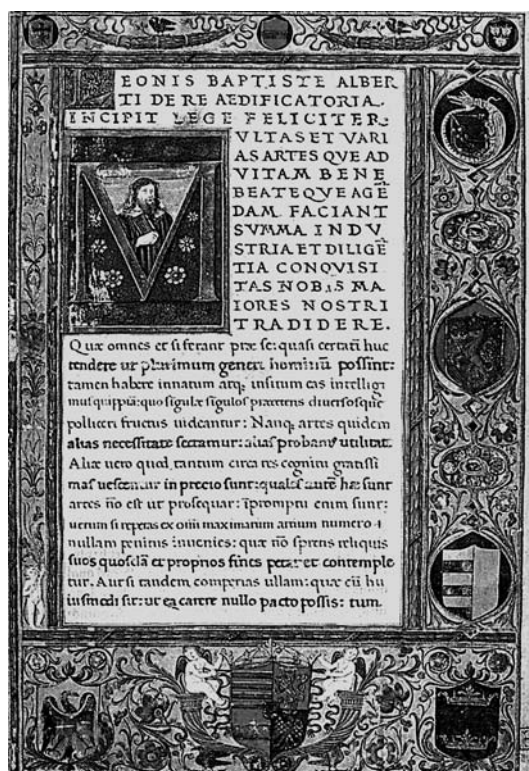 LEONIS BAPTISTE ALBER
TI DE RE AEDIFICATORIA.
INCIPIT LEGE FELICITER.
MVLTAS ET VARI
AS ARTES QVE AD
VITAM BENE
BEATEQVE AGĒ
DAM FACIANT
SVMMA INDV
STRIA ET DILIGĒ
TIA CONQVISI
TAS NOBIS MA
IORES NOSTRI
TRADIDERE.
Quæ omnes et si ferant præ se: quasi certatī huc
tendere ut plurimum generi hominū possint:
tamen habere innatum atq; insitum eas intelligi
mus quippiā: quo sīgulæ sīgulos præterens diversosque
polliceri fructus videantur: Nanq; artes quidem
alias necessitate sectamur: alias probamus utilitate
Aliæ vero quod tantum circa res cognitu gratissi
mas in precio sunt: quales autē hæ sunt
artes nō est ut prosequar: īpromptu enim sunt:
verum si repetas ex omī maximarum artium numero
nullam penitus īuenies: quæ nō spretis reliquis
suos quosdā et proprios fines petat et contemple
tur. Aut si tandem comperias ullam: quæ cū hu
iusmodi sit: ut ea carere nullo pacto possis: tum